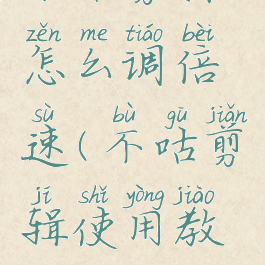 zěn me tiáo bèi
怎么调倍
sù bù gū jiǎn
速(不咕剪
jí shǐ yòng jiào
辑使用教